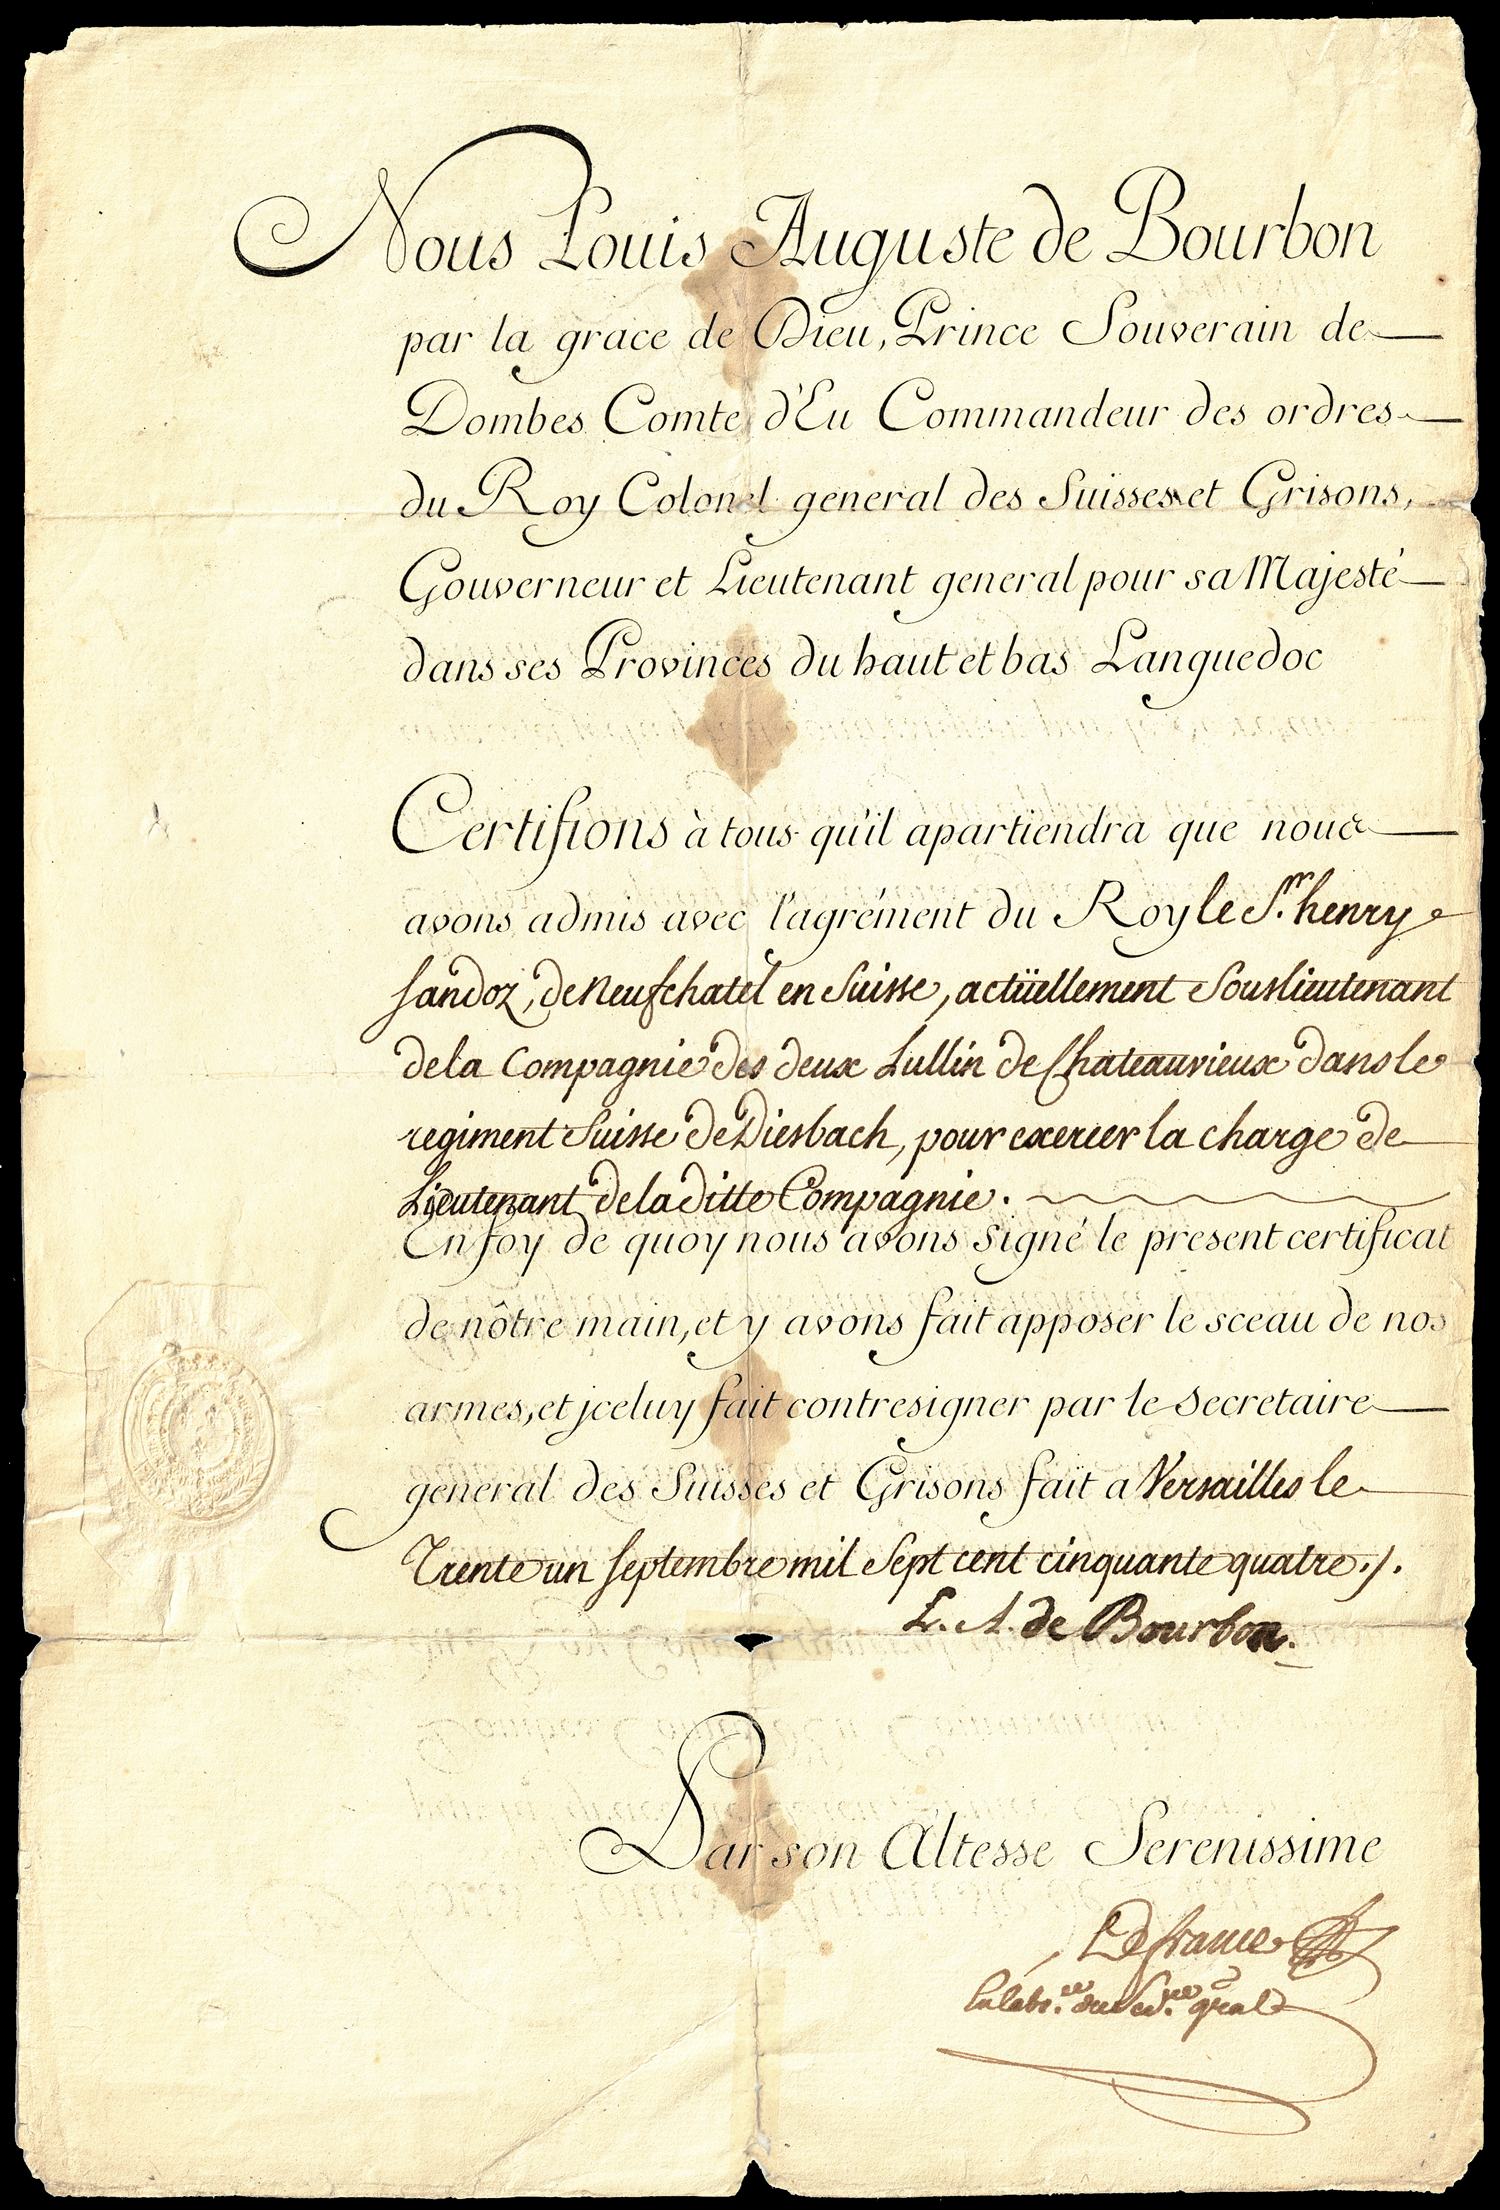 Nous Louis Auguste de Bourbon
par la grace de Dieu, Prince Souverain de
Dombes Comte d'Eu Commandeur des ordres
du Roy Colonel general des Suisses et Grisons,
Gouverneur et Lieutenant general pour sa Majesté
dans ses Provinces du haut et bas Languedoc
Certifions à tous qu'il apartiendra que nous
avons admis avec l'agrément du Roy le Sr. henry
Sandoz, de Neufchatel en Suisse, actüellement Souslieutenant
de la Compagnie des deux Lullin de Chateauvieux dans le
regiment Suisse de Diesbach, pour exercer la charge de
Lieutenant de la ditte Compagnie.
En foy de quoy nous avons signé le present certificat
de nôtre main, et y avons fait apposer le sceau de nos
armes, et jceluy fait contresigner par le Secretaire
general des Suisses et Grisons fait a Versailles le
Trente un Septembre mil Sept cent cinquante quatre ./.
L. A. de Bourbon.
Par son Altesse Serenissime
Defrance